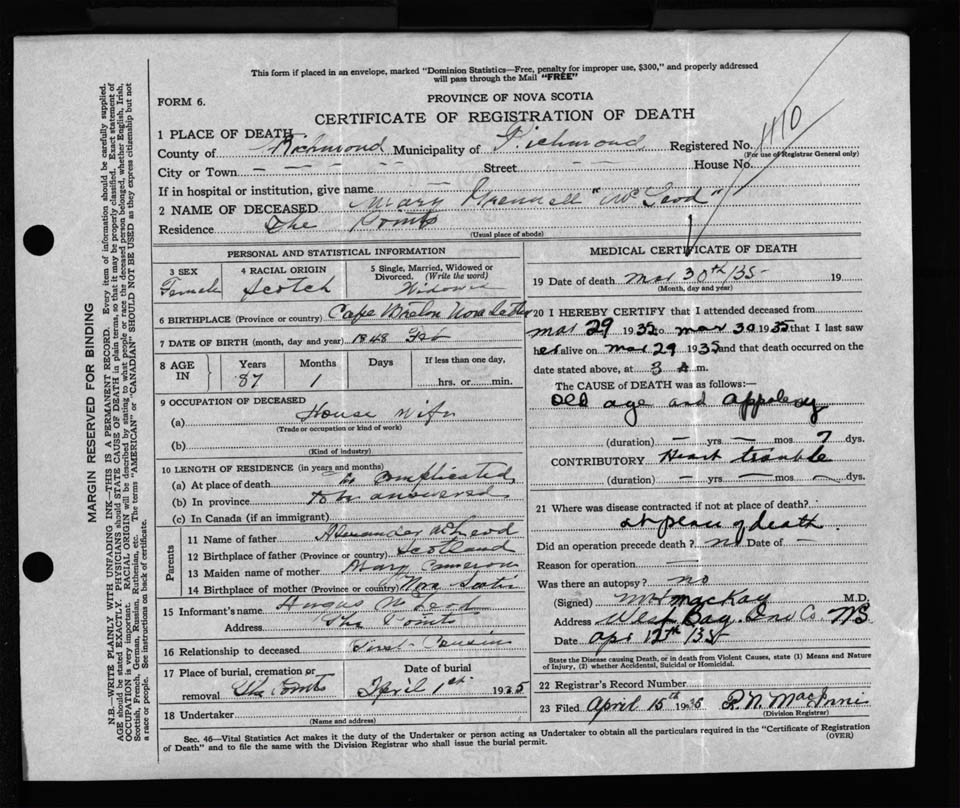 This form if placed in an envelope, marked "Dominion Statistics—Free, penalty for improper use, $300," and properly addressed
will pass through the Mail "FREE"
FORM 6.
PROVINCE OF NOVA SCOTIA
CERTIFICATE OF REGISTRATION OF DEATH
1 PLACE OF DEATH
County of Richmond Municipality of Richmond Registered No.
(For use of Registrar General only)
City or Town — — — — Street — — House No.
If in hospital or institution, give name —
2 NAME OF DECEASED Mary Grennell "McLeod"
Residence The Points
(Usual place of abode)
PERSONAL AND STATISTICAL INFORMATION
3 SEX Female
4 RACIAL ORIGIN Scotch
5 Single, Married, Widowed or Divorced. (Write the word) Widow
6 BIRTHPLACE (Province or country) Cape Breton Nova Scotia
7 DATE OF BIRTH (month, day and year) 1848 Feb
8 AGE IN Years 87 Months 1 Days If less than one day, hrs. or min.
9 OCCUPATION OF DECEASED
(a) House Wife
(Trade or occupation or kind of work)
(b)
(Kind of industry)
10 LENGTH OF RESIDENCE (in years and months)
(a) At place of death to complicated
(b) In province to be answered
(c) In Canada (if an immigrant)
Parents
11 Name of father Alexander McLeod
12 Birthplace of father (Province or country) Scotland
13 Maiden name of mother Mary Cameron
14 Birthplace of mother (Province or country) Nova Scotia
15 Informant's name Angus McLeod
Address The Points
16 Relationship to deceased First Cousin
17 Place of burial, cremation or removal The Points
Date of burial April 1st 1935
18 Undertaker
(Name and address)
MEDICAL CERTIFICATE OF DEATH
19 Date of death Mar 30th/35 19
(Month, day and year)
20 I HEREBY CERTIFY that I attended deceased from
Mar 29 1935 to Mar 30 1935 that I last saw
her alive on Mar 29 1935 and that death occurred on the
date stated above, at 3 A m.
The CAUSE OF DEATH was as follows:—
Old age and appolexy
(duration) — yrs. — mos. 7 dys.
CONTRIBUTORY Heart trouble
(duration) — yrs. — mos. — dys.
21 Where was disease contracted if not at place of death?
at place of death
Did an operation precede death? no Date of —
Reason for operation —
Was there an autopsy? no
(Signed) MacKay M.D.
Address West Bay Inv Co. NS
Date Apr 12th/35
State the Disease causing Death, or in death from Violent Causes, state (1) Means and Nature
of Injury, (2) whether Accidental, Suicidal or Homicidal.
22 Registrar's Record Number
23 Filed April 15th 1935 R. N. MacInnis
(Division Registrar)
Sec. 46—Vital Statistics Act makes it the duty of the Undertaker or person acting as Undertaker to obtain all the particulars required in the "Certificate of Registration
of Death" and to file the same with the Division Registrar who shall issue the burial permit.
(OVER)
MARGIN RESERVED FOR BINDING
N.B.—WRITE PLAINLY WITH UNFADING INK—THIS IS A PERMANENT RECORD. Every item of information should be carefully supplied.
AGE should be stated EXACTLY. PHYSICIANS should STATE CAUSE OF DEATH in plain terms, so that it may be properly classified. Exact statement of
OCCUPATION is very important. RACIAL ORIGIN will be described by stating to what people or race the deceased person belonged, whether English, Irish,
Scottish, French, German, Russian, Ruthenian, etc. The terms "AMERICAN" or "CANADIAN" SHOULD NOT BE USED as they express citizenship but not
a race or people. See instructions on back of certificate.